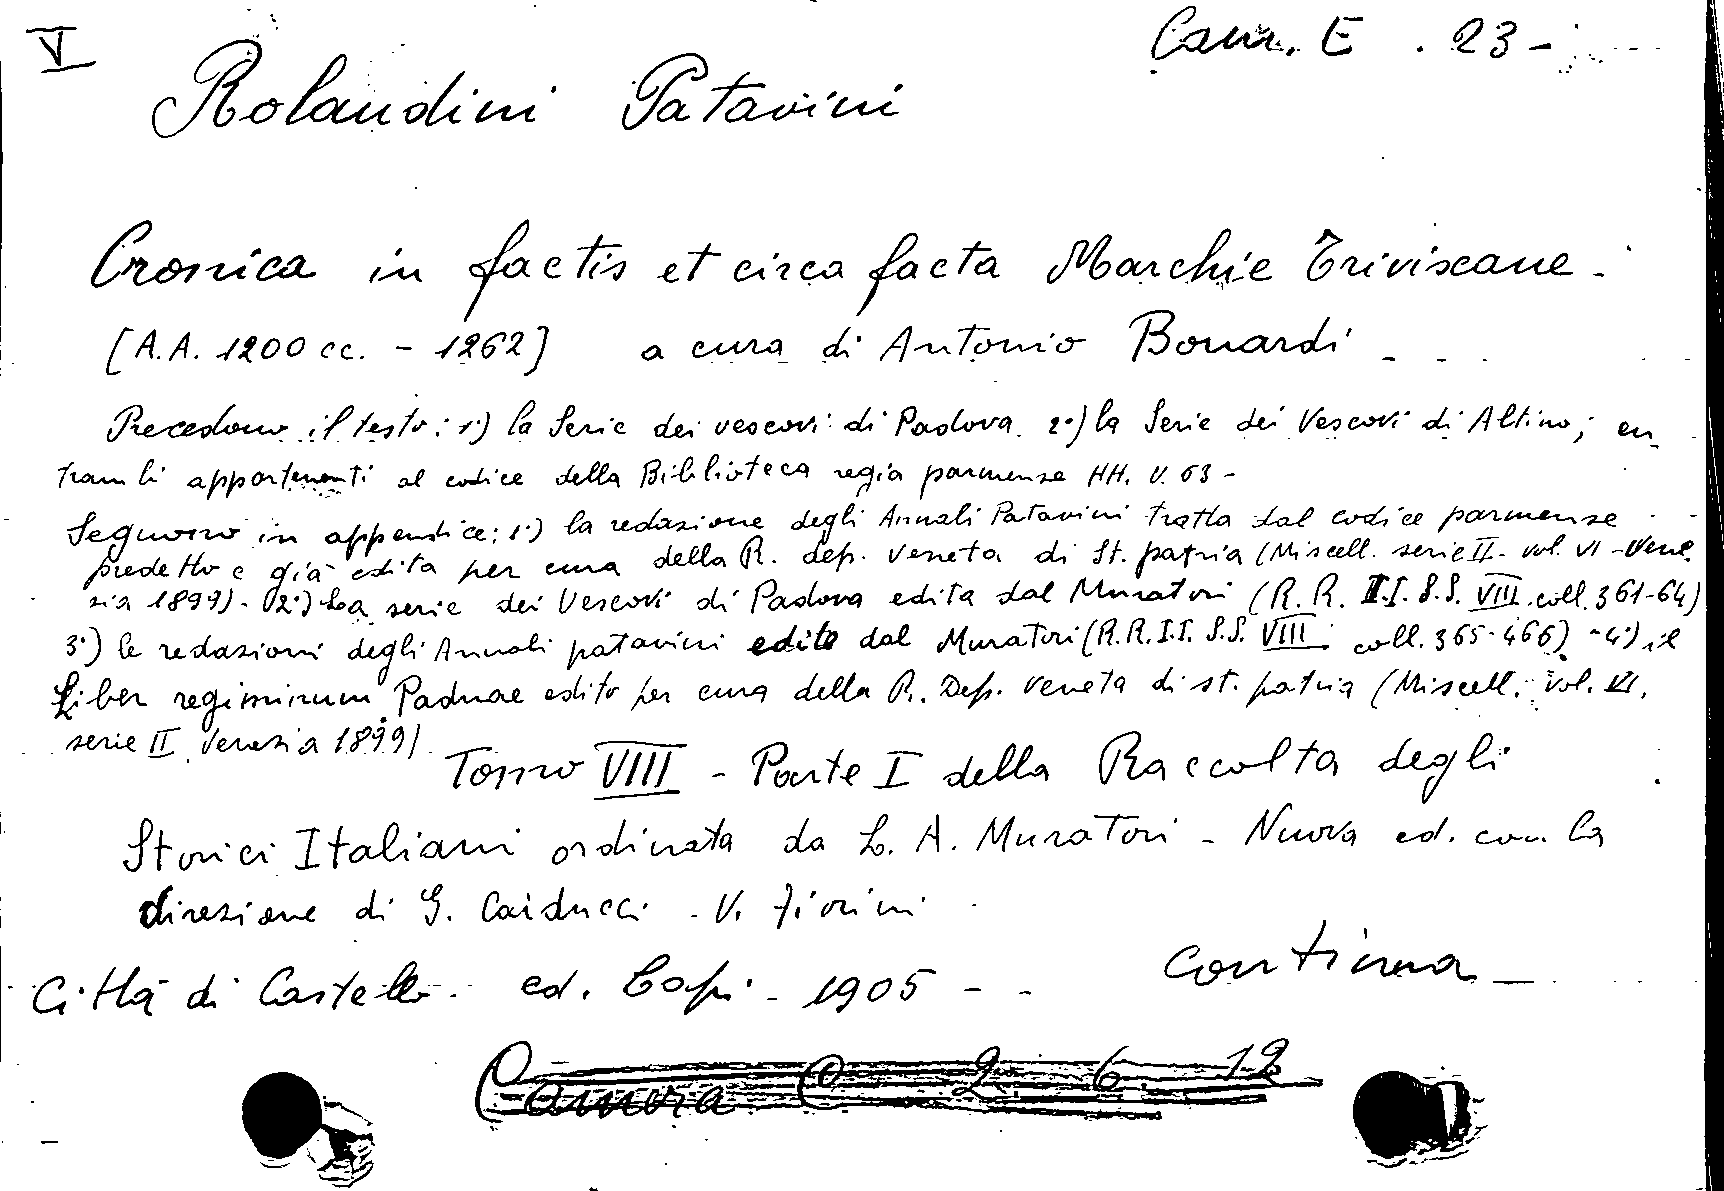 V
Cam. E . 23 -
Rolandini Patavini
Cronica in factis et circa facta Marchie Trivixane -
[A.A. 1200 cc. - 1262] a cura di Antonio Bonardi - - -
Precedono il testo: 1°) la Serie dei vescovi di Padova 2°) la Serie dei Vescovi di Altino; en
trambi appartenenti al codice della Biblioteca regia parmense HH. V. 63 -
Seguono in appendice: 1°) la redazione degli Annali Patavini tratta dal codice parmense
predetto e già edita per cura della R. dep. veneta di St. patria (Miscell. serie II - vol. VI - Vene
zia 1899) - 2°) La serie dei Vescovi di Padova edita dal Muratori (R. R. I.I. S.S. VIII coll. 361-64)
3°) le redazioni degli Annali patavini edite dal Muratori (R.R.I.I. S.S. VIII coll. 365-466) - 4°) il
Liber regiminum Paduae edito per cura della R. Dep. veneta di st. patria (Miscell. vol. VI,
serie II Venezia 1899)
Tomo VIII - Parte I della Raccolta degli
Storici Italiani ordinata da L. A. Muratori - Nuova ed. con la
direzione di G. Carducci - V. Fiorini
Città di Castello - ed. Lapi - 1905 - -
continua -
Camera C 2 6 12